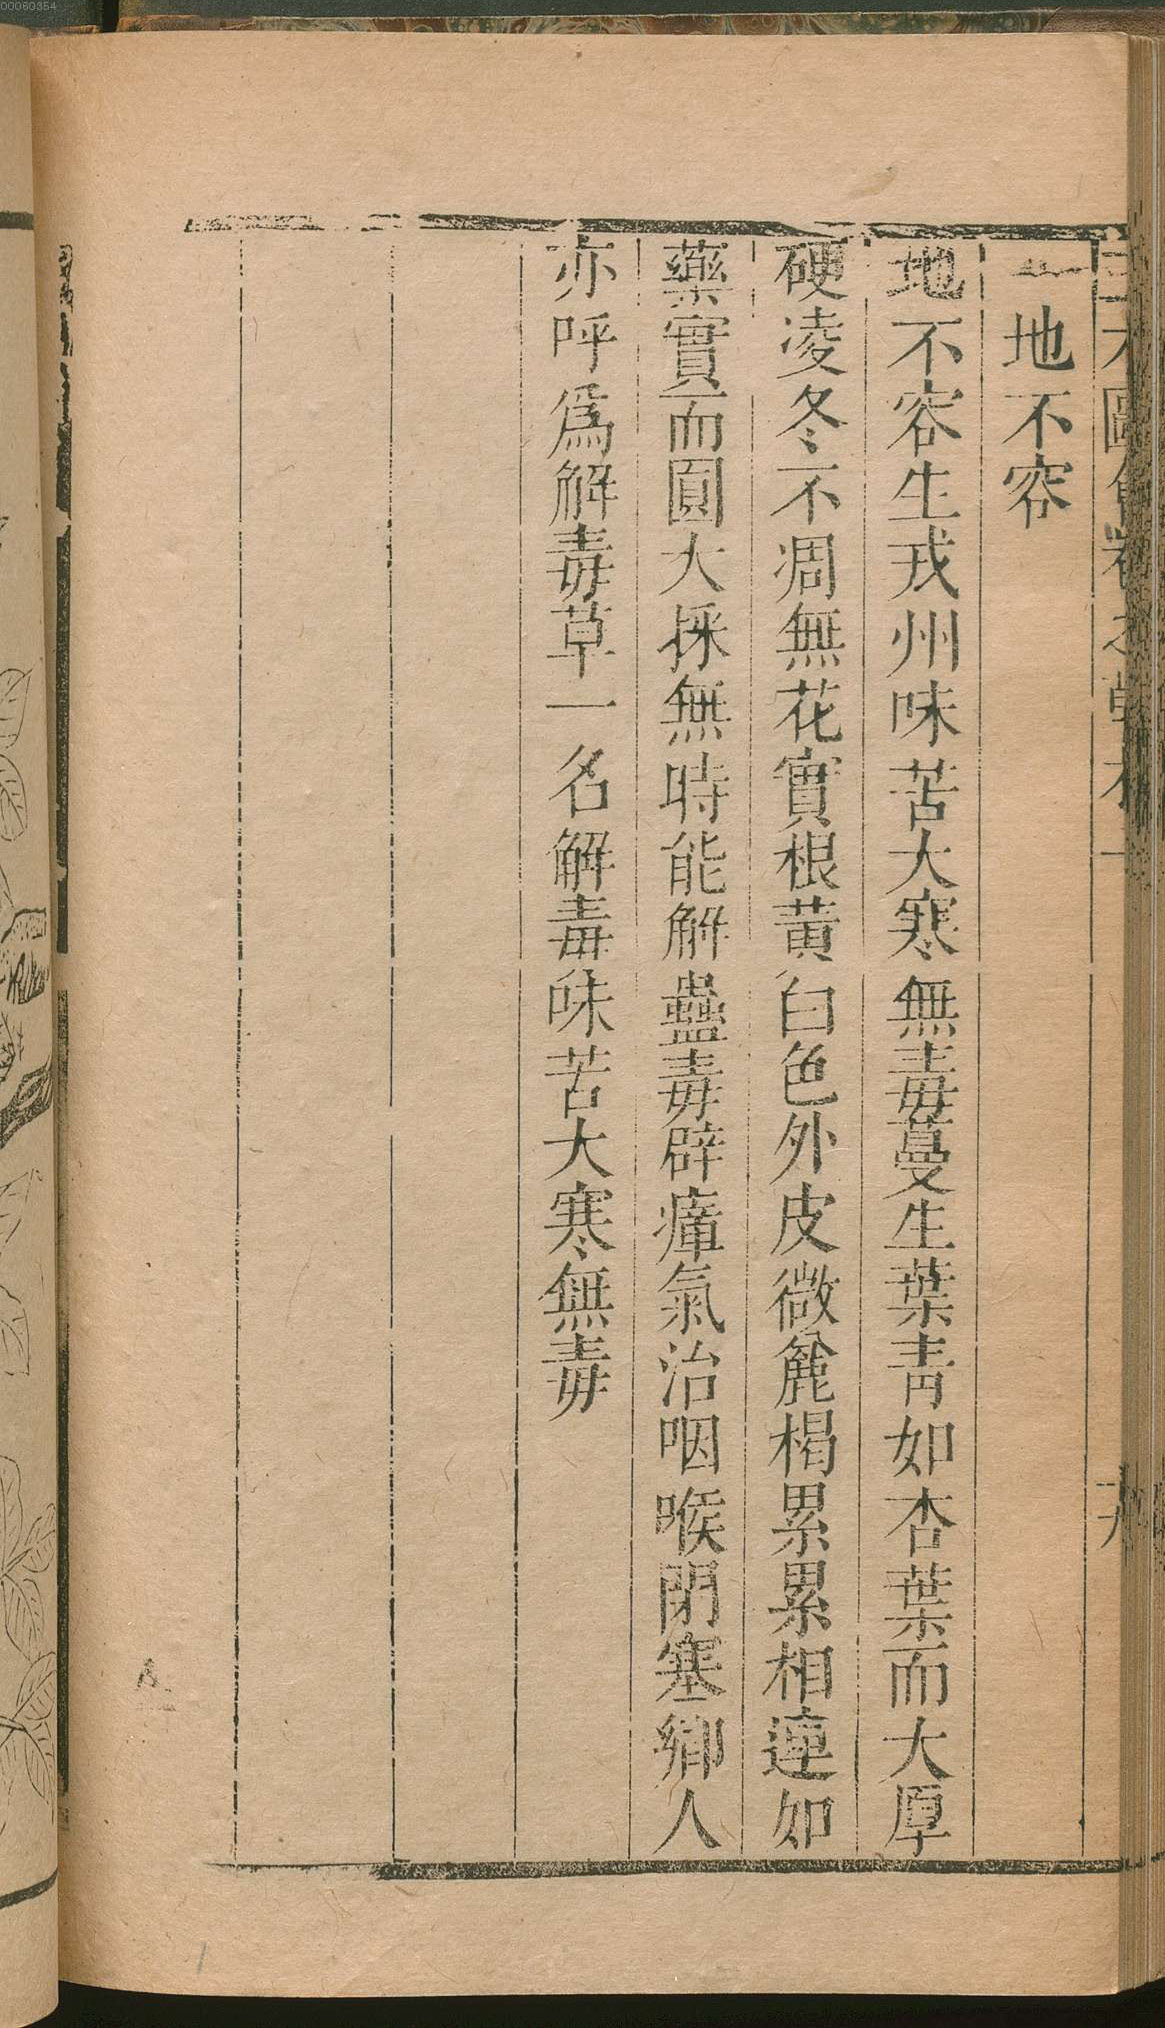 00060354
圖會卷之草木
十九
地不容
地不容生戎州味苦大寒無毒蔓生葉青如杏葉而大厚
硬凌冬不凋無花實根黃白色外皮微麄楬累累相連如
藥實而圓大採無時能解蠱毒辟瘴氣治咽喉閉塞鄉人
亦呼爲解毒草一名解毒味苦大寒無毒